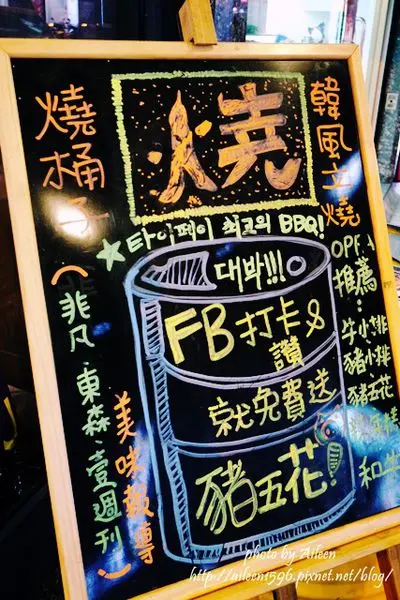 燒
燒桶子
韓風立燒
★타이페이 최고의 BBQ!
대박!!!
FB打卡&讚
就免費送
豬五花!
OPEN
推薦:
牛小排
豬小排
豬五花
和牛
(非凡、東森、壹週刊
美味報導)
photo by Aileen
http://aileen1596.pixnet.net/blog/